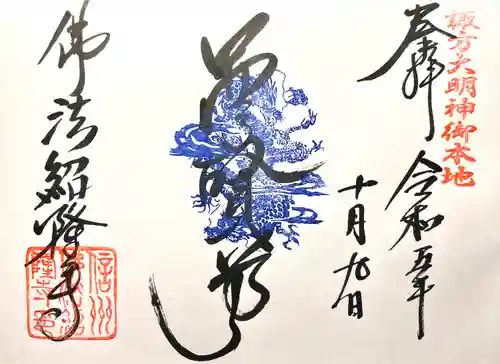 諏方大明神御本地
奉拝
令和五年
十月九日
普賢尊
佛法紹隆寺
信州